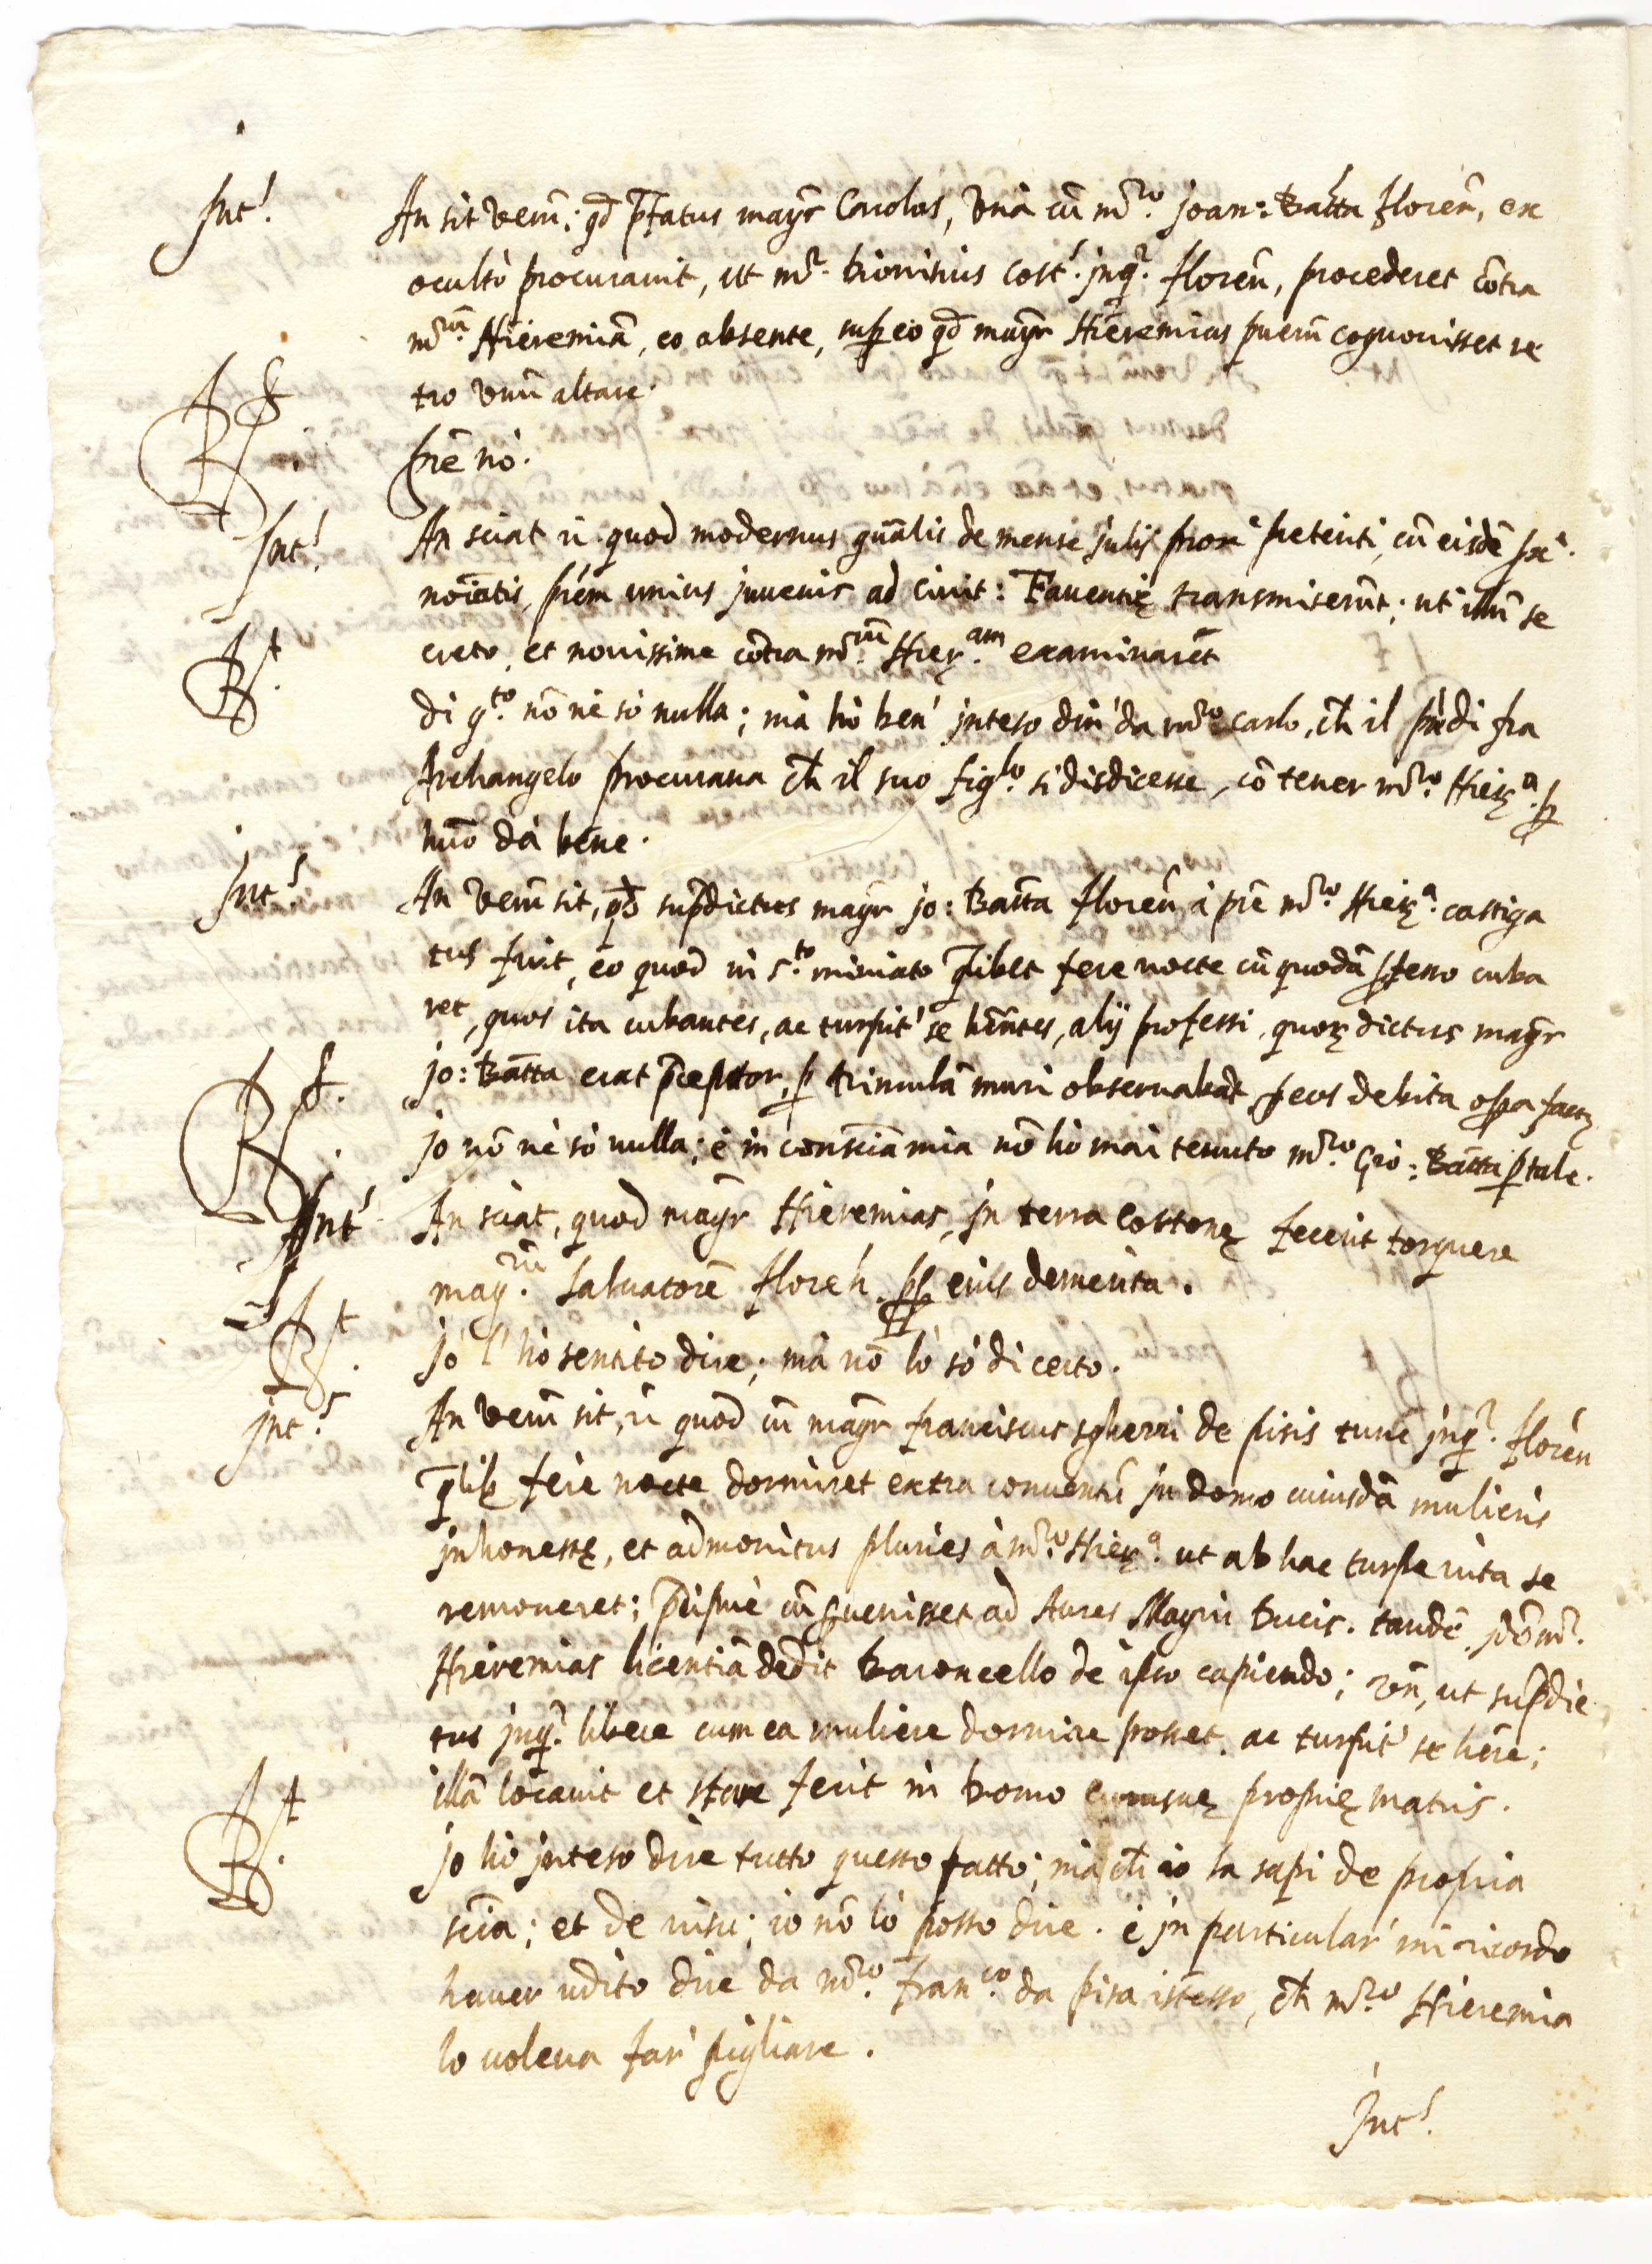 Int.
An sit verũ; qd p̃fatus magr̃ Carolus, unà cũ mro. Joan: Batta floreñ, ex
ocultò procurauit, ut mr. Dionisius Cost. jnqr. floreñ, procederet cõtra
mrum Hieremiã, eo absente, sup eo qd magr̃ Hieremias puerũ cognouisset re
tro unũ altare.
Rt.
pr̃e nò.
Int.
An sciat r̃ quod modernus gñalis de mense julij prox̃ preteriti, cũ eisdẽ
noĩatis, pr̃em unius juuenis ad ciuit: Fauentię transmiserũt; ut illũ se
creto, et nouissime cõtra mrum Hieram examinarẽt
Rt.
di qto. nõ nè sò nulla; mà hò ben' jnteso dir' da mro carlo, ch̃ il pr̃e di fra
Archangelo procuraua ch̃ il suo figlo. si disdicesse, cõ tener mro. Hiera. p
huõ da bene.
Int.
An verũ sit, qd sup̃dictus magr̃ jo: Batta floreñ à pr̃e mro Hiera. castiga
tus fuit, eo quod in Sto. miniato qlibet fere nocte cũ quodã cuba
ret, quos ita cubantes, ac turpit' se hẽntes, alij professi, quorũ dictus magr̃
jo: Batta erat p̃ceptor, p rimulã muri obseruabãt
Rt.
jo nõ nè sò nulla; è in consciã mia nõ hò mai tenuto mro Gio: Batta p tale.
Int.
An sciat, quod magr̃ Hieremias, jn terra Cortonę fecerit torquere
magrũ. Saluatorẽ floreñ. pp eius demerita.
Rt.
jo l'hò sentito dire; mà nõ lò sò di certo.
jnt.
An verũ sit, r̃ quod cũ magr̃ franciscus sgherri de pisis tunc jnqr. floreñ
qlib fere nocte dormiret extra conuentũ jn domo cuiusdã mulieris
jnhonestę, et admonitus pluries à mro. Hiera. ut ab hac turpe uita se
remoueret; p̃cipuè cũ puenisset ad Aures Magni Ducis. tandẽ pdo mr.
Hieremias licentiã dedit Baroncello de ipso capiendo; vñ, ut sup̃dic
tus jnqr. libere cum ea muliere dormire posset, ac turpit' se hẽre;
illã locauit et stare fecit in Domo suę proprię matris.
Rt.
jo hò jnteso dire tutto questo fatto; mà ch̃ io la sapi de propria
sciã; et de uisu; io nõ lò posso dire. è jn particular' mi ricordo
hauer udito dire da mro. Franco. da pisa istesso, ch̃ mro Hieremia
lo uoleua far' pigliare.
Int.